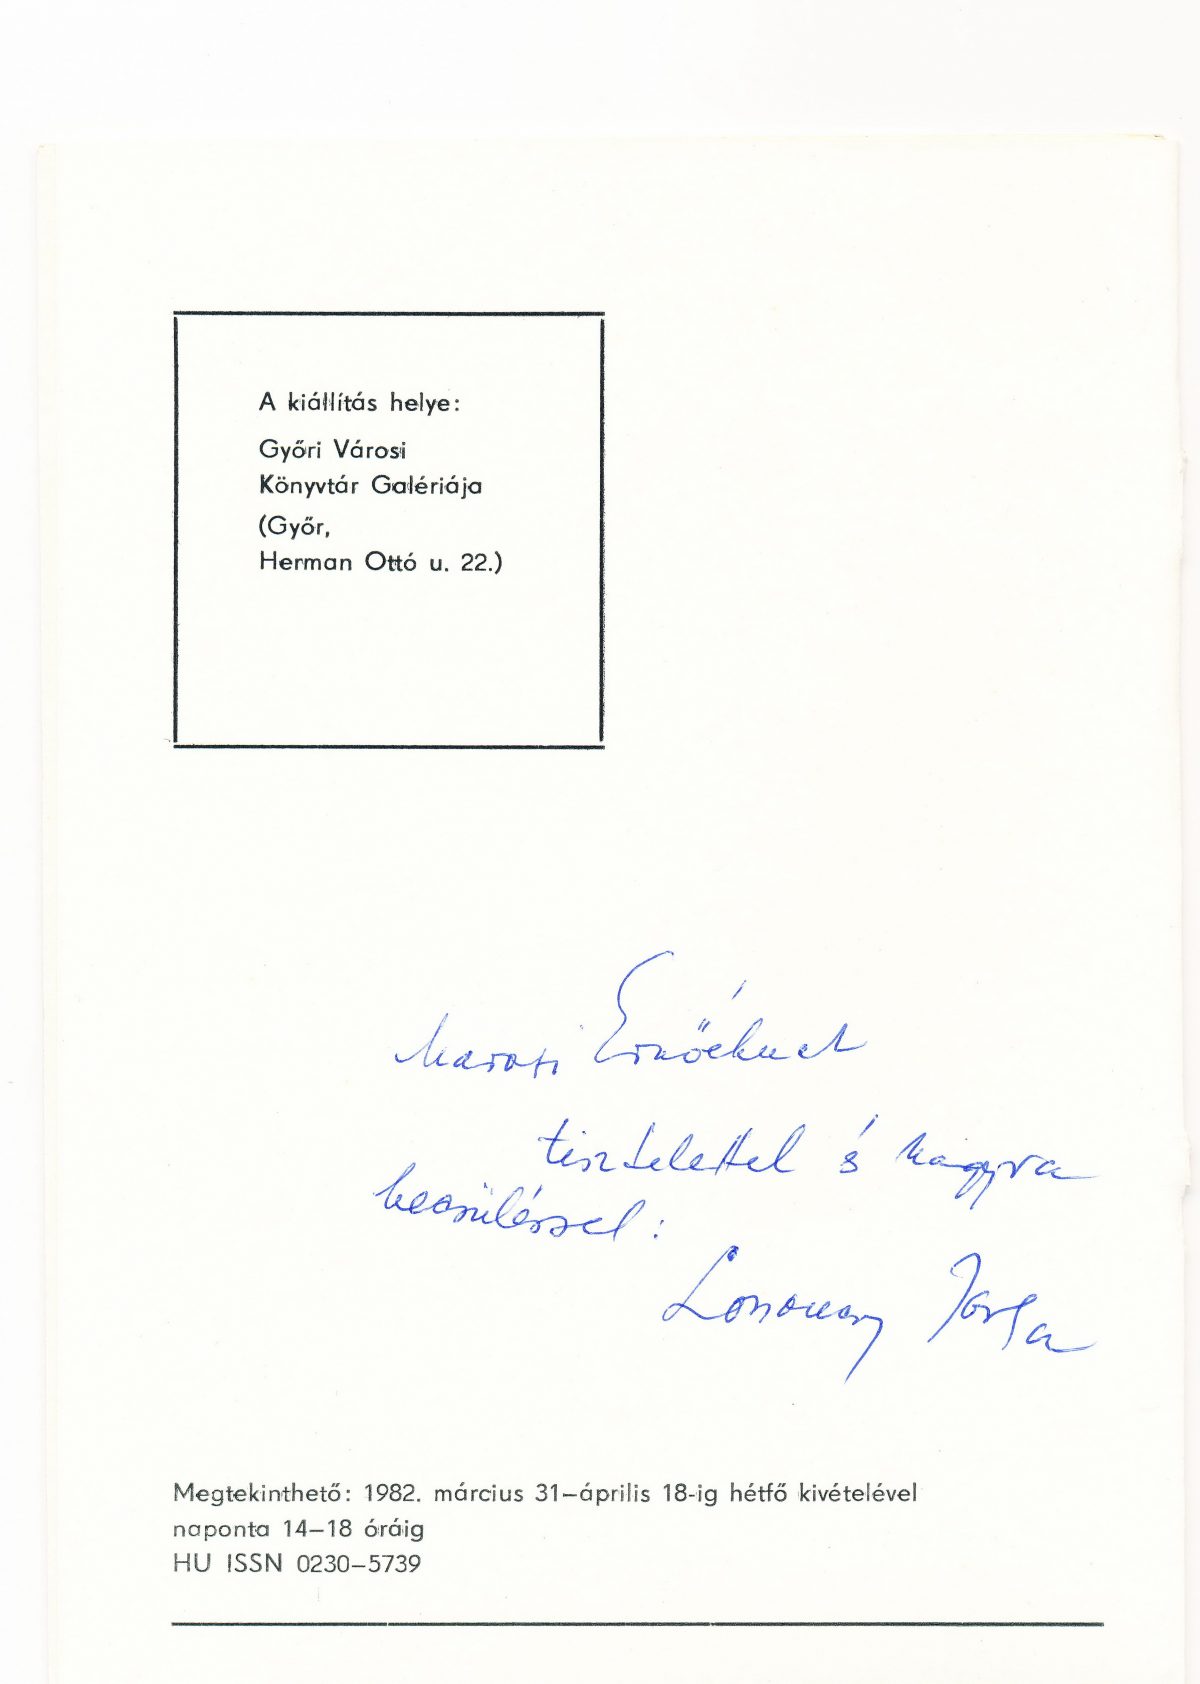 A kiállítás helye:
Győri Városi
Könyvtár Galériája
(Győr,
Herman Ottó u. 22.)
Marosi Ernőéknek
tisztelettel és nagyra
becsüléssel:
Losonczy
Megtekinthető: 1982. március 31–április 18-ig hétfő kivételével
naponta 14–18 óráig
HU ISSN 0230–5739